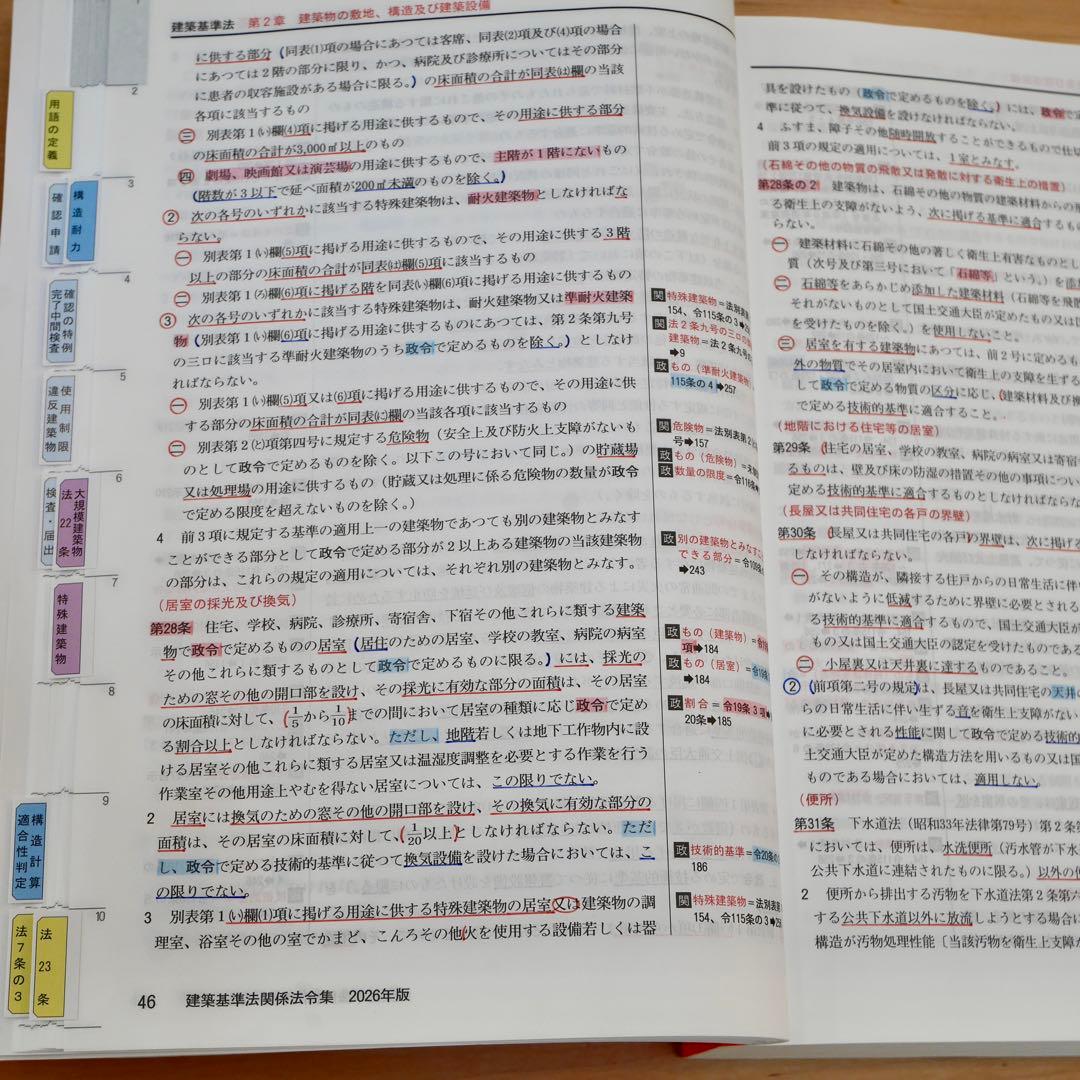 建築基準法 第2章 建築物の敷地、構造及び建築設備
に供する部分(同表⑴項の場合にあつては客席、同表⑵項及び⑷項の場合
にあつては2階の部分に限り、かつ、病院及び診療所についてはその部分
に患者の収容施設がある場合に限る。)の床面積の合計が同表㈡欄の当該
各項に該当するもの
三 別表第1㈠欄⑷項に掲げる用途に供するもので、その用途に供する部分
の床面積の合計が3,000㎡以上のもの
四 劇場、映画館又は演芸場の用途に供するもので、主階が1階にないもの
(階数が3以下で延べ面積が200㎡未満のものを除く。)
② 次の各号のいずれかに該当する特殊建築物は、耐火建築物としなければな
らない。
一 別表第1(い)欄⑸項に掲げる用途に供するもので、その用途に供する3階
以上の部分の床面積の合計が同表(は)欄⑸項に該当するもの
二 別表第1(ろ)欄⑹項に掲げる階を同表(い)欄⑹項に掲げる用途に供するもの
③ 次の各号のいずれかに該当する特殊建築物は、耐火建築物又は準耐火建築
物(別表第1(い)欄⑹項に掲げる用途に供するものにあつては、第2条第九号
の三ロに該当する準耐火建築物のうち政令で定めるものを除く。)としなけ
ればならない。
一 別表第1(い)欄⑸項又は⑹項に掲げる用途に供するもので、その用途に供
する部分の床面積の合計が同表(に)欄の当該各項に該当するもの
二 別表第2(と)項第四号に規定する危険物(安全上及び防火上支障がないも
のとして政令で定めるものを除く。以下この号において同じ。)の貯蔵場
又は処理場の用途に供するもの(貯蔵又は処理に係る危険物の数量が政令
で定める限度を超えないものを除く。)
4 前3項に規定する基準の適用上一の建築物であつても別の建築物とみなす
ことができる部分として政令で定める部分が2以上ある建築物の当該建築物
の部分は、これらの規定の適用については、それぞれ別の建築物とみなす。
(居室の採光及び換気)
第28条 住宅、学校、病院、診療所、寄宿舎、下宿その他これらに類する建築
物で政令で定めるものの居室(居住のための居室、学校の教室、病院の病室
その他これらに類するものとして政令で定めるものに限る。)には、採光の
ための窓その他の開口部を設け、その採光に有効な部分の面積は、その居室
の床面積に対して、(1/5から1/10)までの間において居室の種類に応じ政令で定め
る割合以上としなければならない。ただし、地階若しくは地下工作物内に設
ける居室その他これらに類する居室又は温湿度調整を必要とする作業を行う
作業室その他用途上やむを得ない居室については、この限りでない。
2 居室には換気のための窓その他の開口部を設け、その換気に有効な部分の
面積は、その居室の床面積に対して、(1/20以上)としなければならない。ただ
し、政令で定める技術的基準に従つて換気設備を設けた場合においては、こ
の限りでない。
3 別表第1(い)欄⑴項に掲げる用途に供する特殊建築物の居室又は建築物の調
理室、浴室その他の室でかまど、こんろその他火を使用する設備若しくは器
46 建築基準法関係法令集 2026年版
2
用語の定義
3
確認申請
構造耐力
4
確認の特例
完了中間検査
5
使用制限
違反建築物
6
検査・届出
大規模建築物
法22条
7
特殊建築物
8
9
構造計算
適合性判定
10
法7条の3
法23条
関 特殊建築物=法別表
154、令115条の3➡
関 法2条九号の三ロの
建築物=法2条九号の
➡9
政 もの(準耐火建築物)
115条の4➡257
関 危険物=法別表第2
号➡157
政 もの(危険物)=未
政 数量の限度=令116条
政 別の建築物とみなす
できる部分=令109条
➡243
政 もの(建築物)=令
項➡184
政 もの(居室)=令
➡184
政 割合=令19条3項
20条➡185
政 技術的基準=令20条の
186
関 特殊建築物=法別表第
154、令115条の3➡
具を設けたもの(政令で定めるものを除く。)には、政令で定
準に従つて、換気設備を設けなければならない。
4 ふすま、障子その他随時開放することができるもので仕
前3項の規定の適用については、1室とみなす。
(石綿その他の物質の飛散又は発散に対する衛生上の措置)
第28条の2 建築物は、石綿その他の物質の建築材料からの飛
る衛生上の支障がないよう、次に掲げる基準に適合するも
一 建築材料に石綿その他の著しく衛生上有害なものとし
質(次号及び第三号において「石綿等」という。)を添
二 石綿等をあらかじめ添加した建築材料(石綿等を飛散
それがないものとして国土交通大臣が定めたもの又は国
を受けたものを除く。)を使用しないこと。
三 居室を有する建築物にあつては、前2号に定めるも
外の物質でその居室内において衛生上の支障を生ずる
して政令で定める物質の区分に応じ、建築材料及び換
で定める技術的基準に適合すること。
(地階における住宅等の居室)
第29条 住宅の居室、学校の教室、病院の病室又は寄宿
るものは、壁及び床の防湿の措置その他の事項につい
定める技術的基準に適合するものとしなければならな
(長屋又は共同住宅の各戸の界壁)
第30条 (長屋又は共同住宅の各戸)の界壁は、次に掲げる
しなければならない。
一 その構造が、隣接する住戸からの日常生活に伴い
がないように低減するために界壁に必要とされる
る技術的基準に適合するもので、国土交通大臣が定
もの又は国土交通大臣の認定を受けたものである
二 小屋裏又は天井裏に達するものであること。
② (前項第二号の規定)は、長屋又は共同住宅の天井の
らの日常生活に伴い生ずる音を衛生上支障がない
に必要とされる性能に関して政令で定める技術的
土交通大臣が定めた構造方法を用いるもの又は国
ものである場合においては、適用しない。
(便所)
第31条 下水道法(昭和33年法律第79号)第2条第
においては、便所は、水洗便所(汚水管が下水
公共下水道に連結されたものに限る。)以外の便
2 便所から排出する汚物を下水道法第2条第六
する公共下水道以外に放流しようとする場合に
構造が汚物処理性能〔当該汚物を衛生上支障が